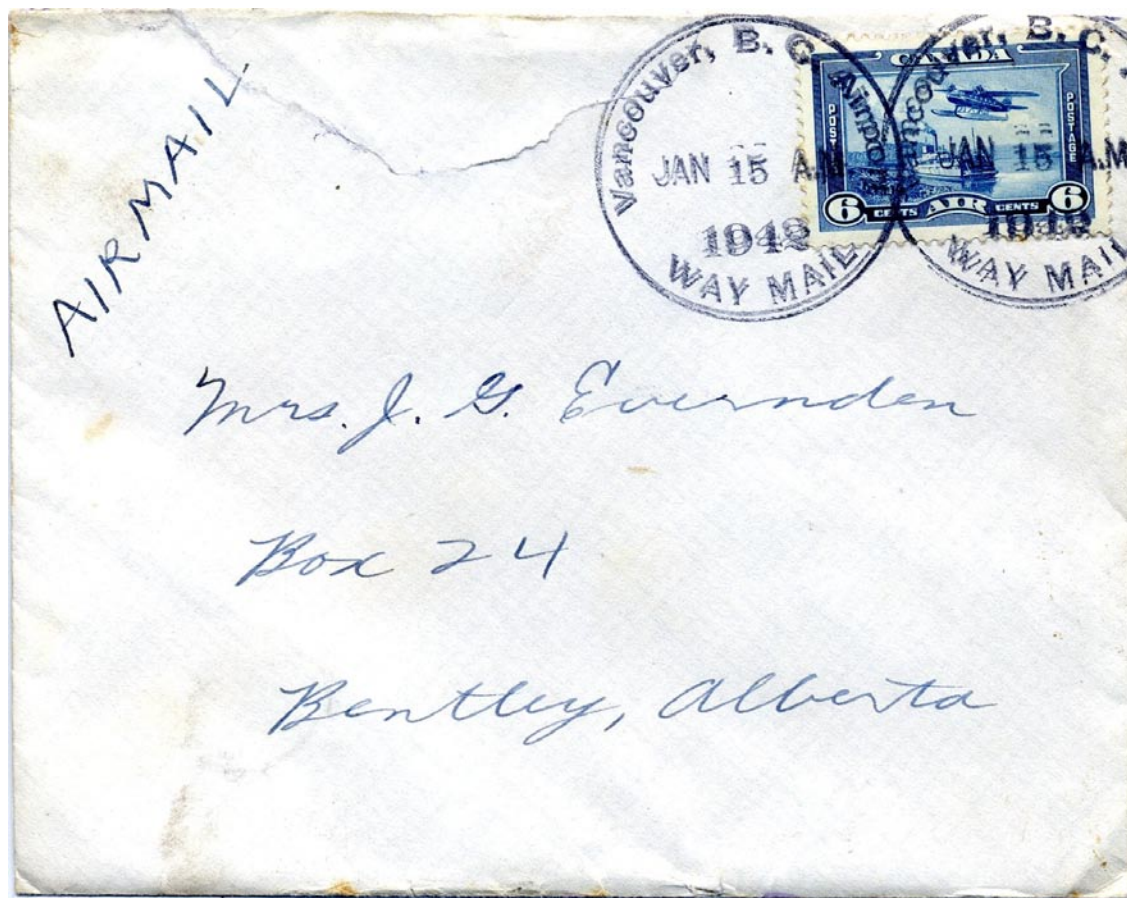 AIRMAIL
Vancouver, B. C. Airport
JAN 15 A.M
WAY MAIL
Vancouver, B. C.
JAN 15 A.M
WAY MAIL
CANADA
POSTAGE
6 CENTS AIR CENTS 6
Mrs. J. G. Evernden
Box 24
Bentley, Alberta